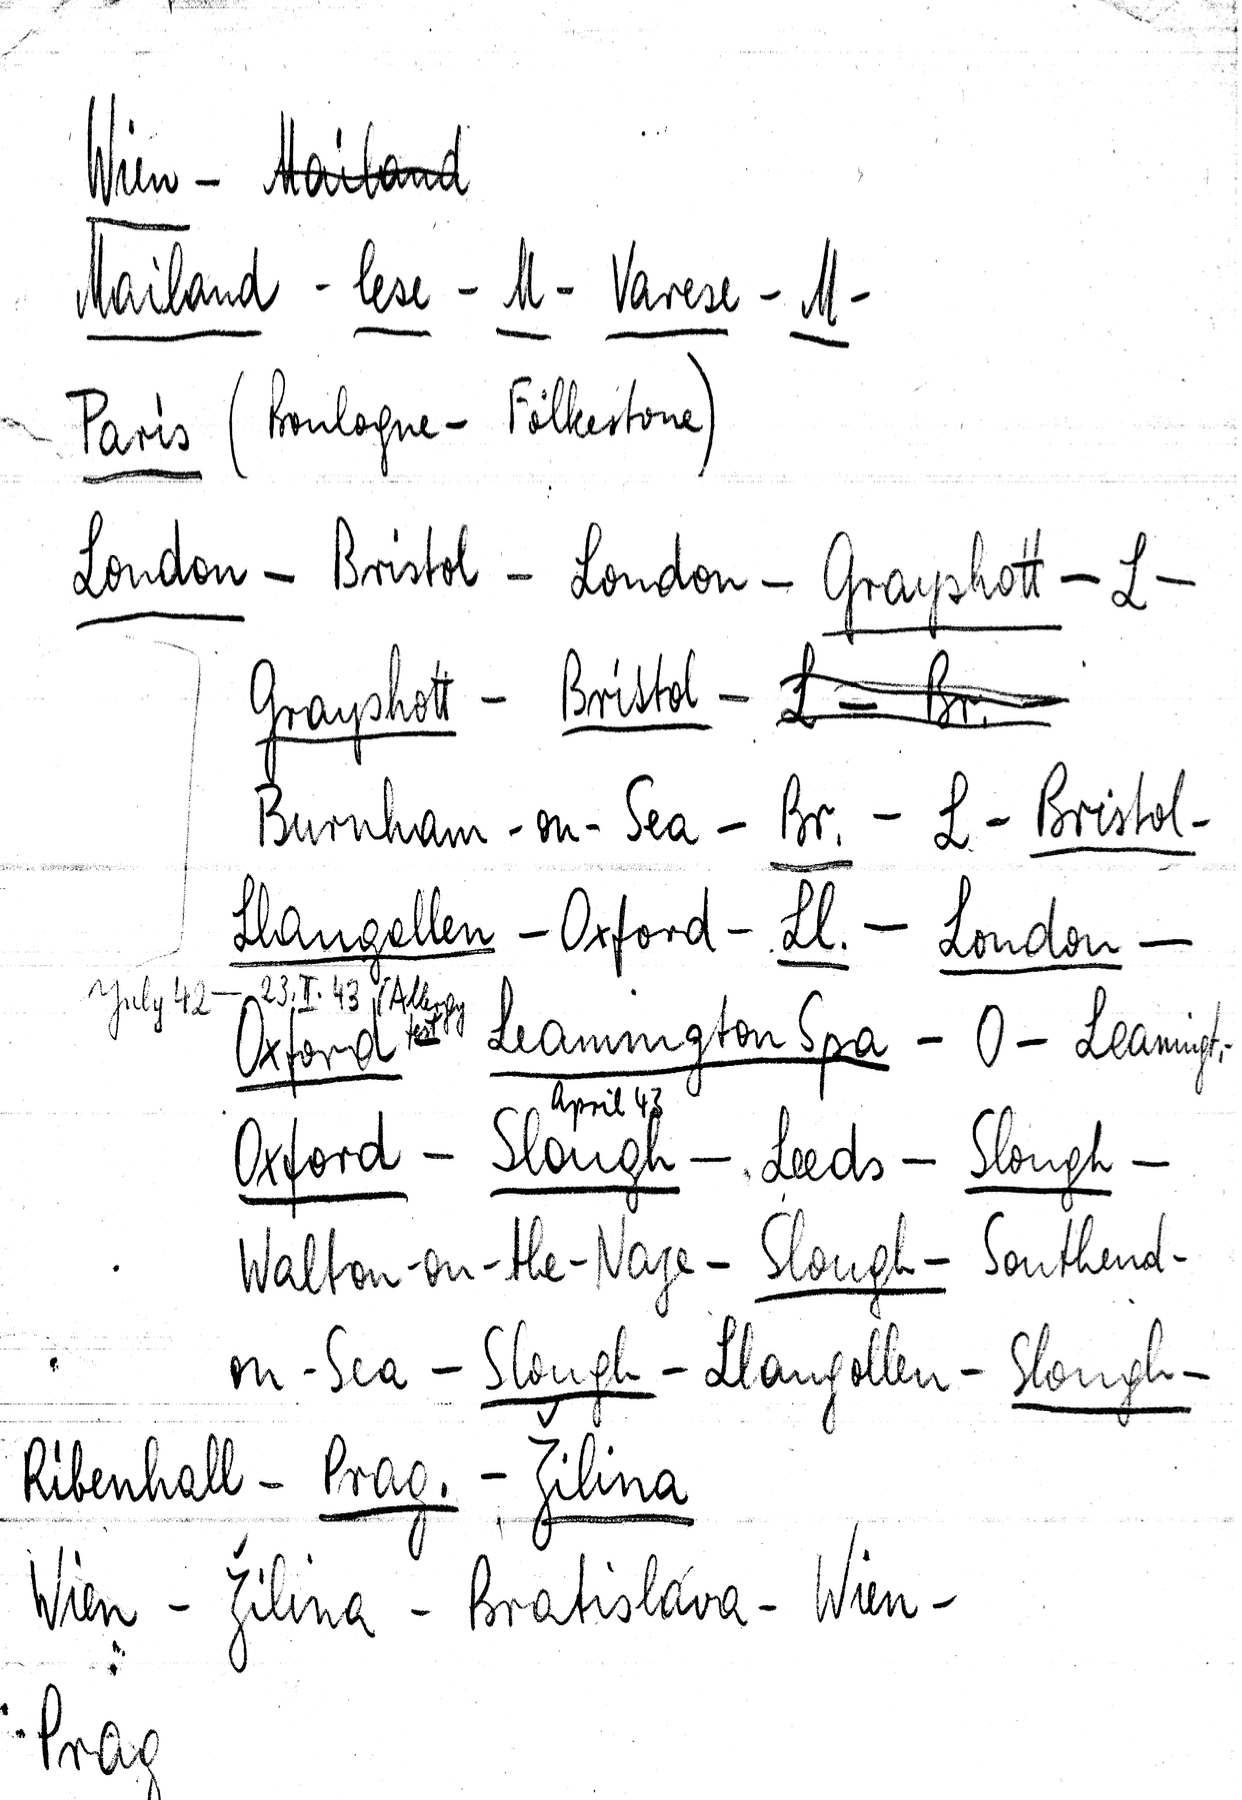 Wien - Mailand
Mailand - lese - M - Varese - M -
Paris (Boulogne - Folkestone)
London - Bristol - London - Grayshott - L -
Grayshott - Bristol - L - Br.
Burnham-on-Sea - Br. - L - Bristol -
Llangollen - Oxford - Ll. - London -
July 42 - 23.II.43 (Allergy test
Oxford - Leamington Spa - O - Leamingt. -
April 43
Oxford - Slough - Leeds - Slough -
Walton-on-the-Naze - Slough - Southend-
on-Sea - Slough - Llangollen - Slough -
Ribenhall - Prag. - Žilina
Wien - Žilina - Bratislava - Wien -
Prag